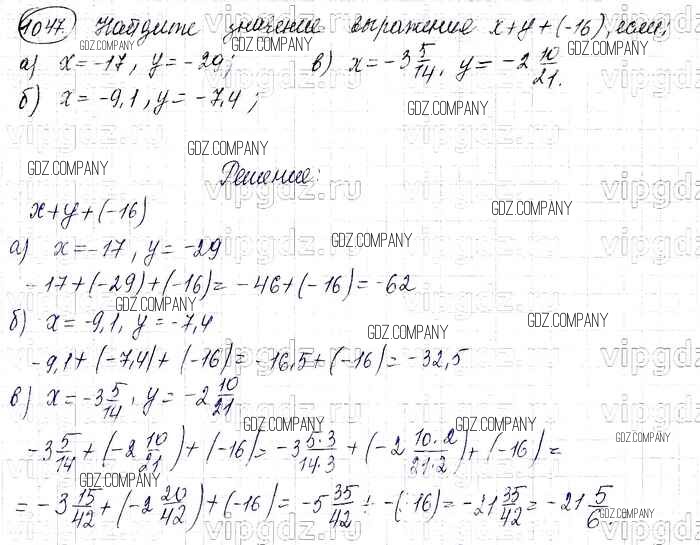 1047. Найдите значение выражения x+y+(-16), если:
а) x=-17, y=-29; в) x=-3 5/14, y=-2 10/21.
б) x=-9,1, y=-7,4;
Решение:
x+y+(-16)
а) x=-17, y=-29
-17+(-29)+(-16)= -46+(-16)=-62
б) x=-9,1, y=-7,4
-9,1+(-7,4)+(-16)=-16,5+(-16)=-32,5
в) x=-3 5/14, y=-2 10/21
-3 5/14+(-2 10/21)+(-16)=-3 5·3/14·3+(-2 10·2/21·2)+(-16)=
=-3 15/42+(-2 20/42)+(-16)=-5 35/42+-(16)=-21 35/42=-21 5/6.
GDZ.COMPANY
vipgdz.ru